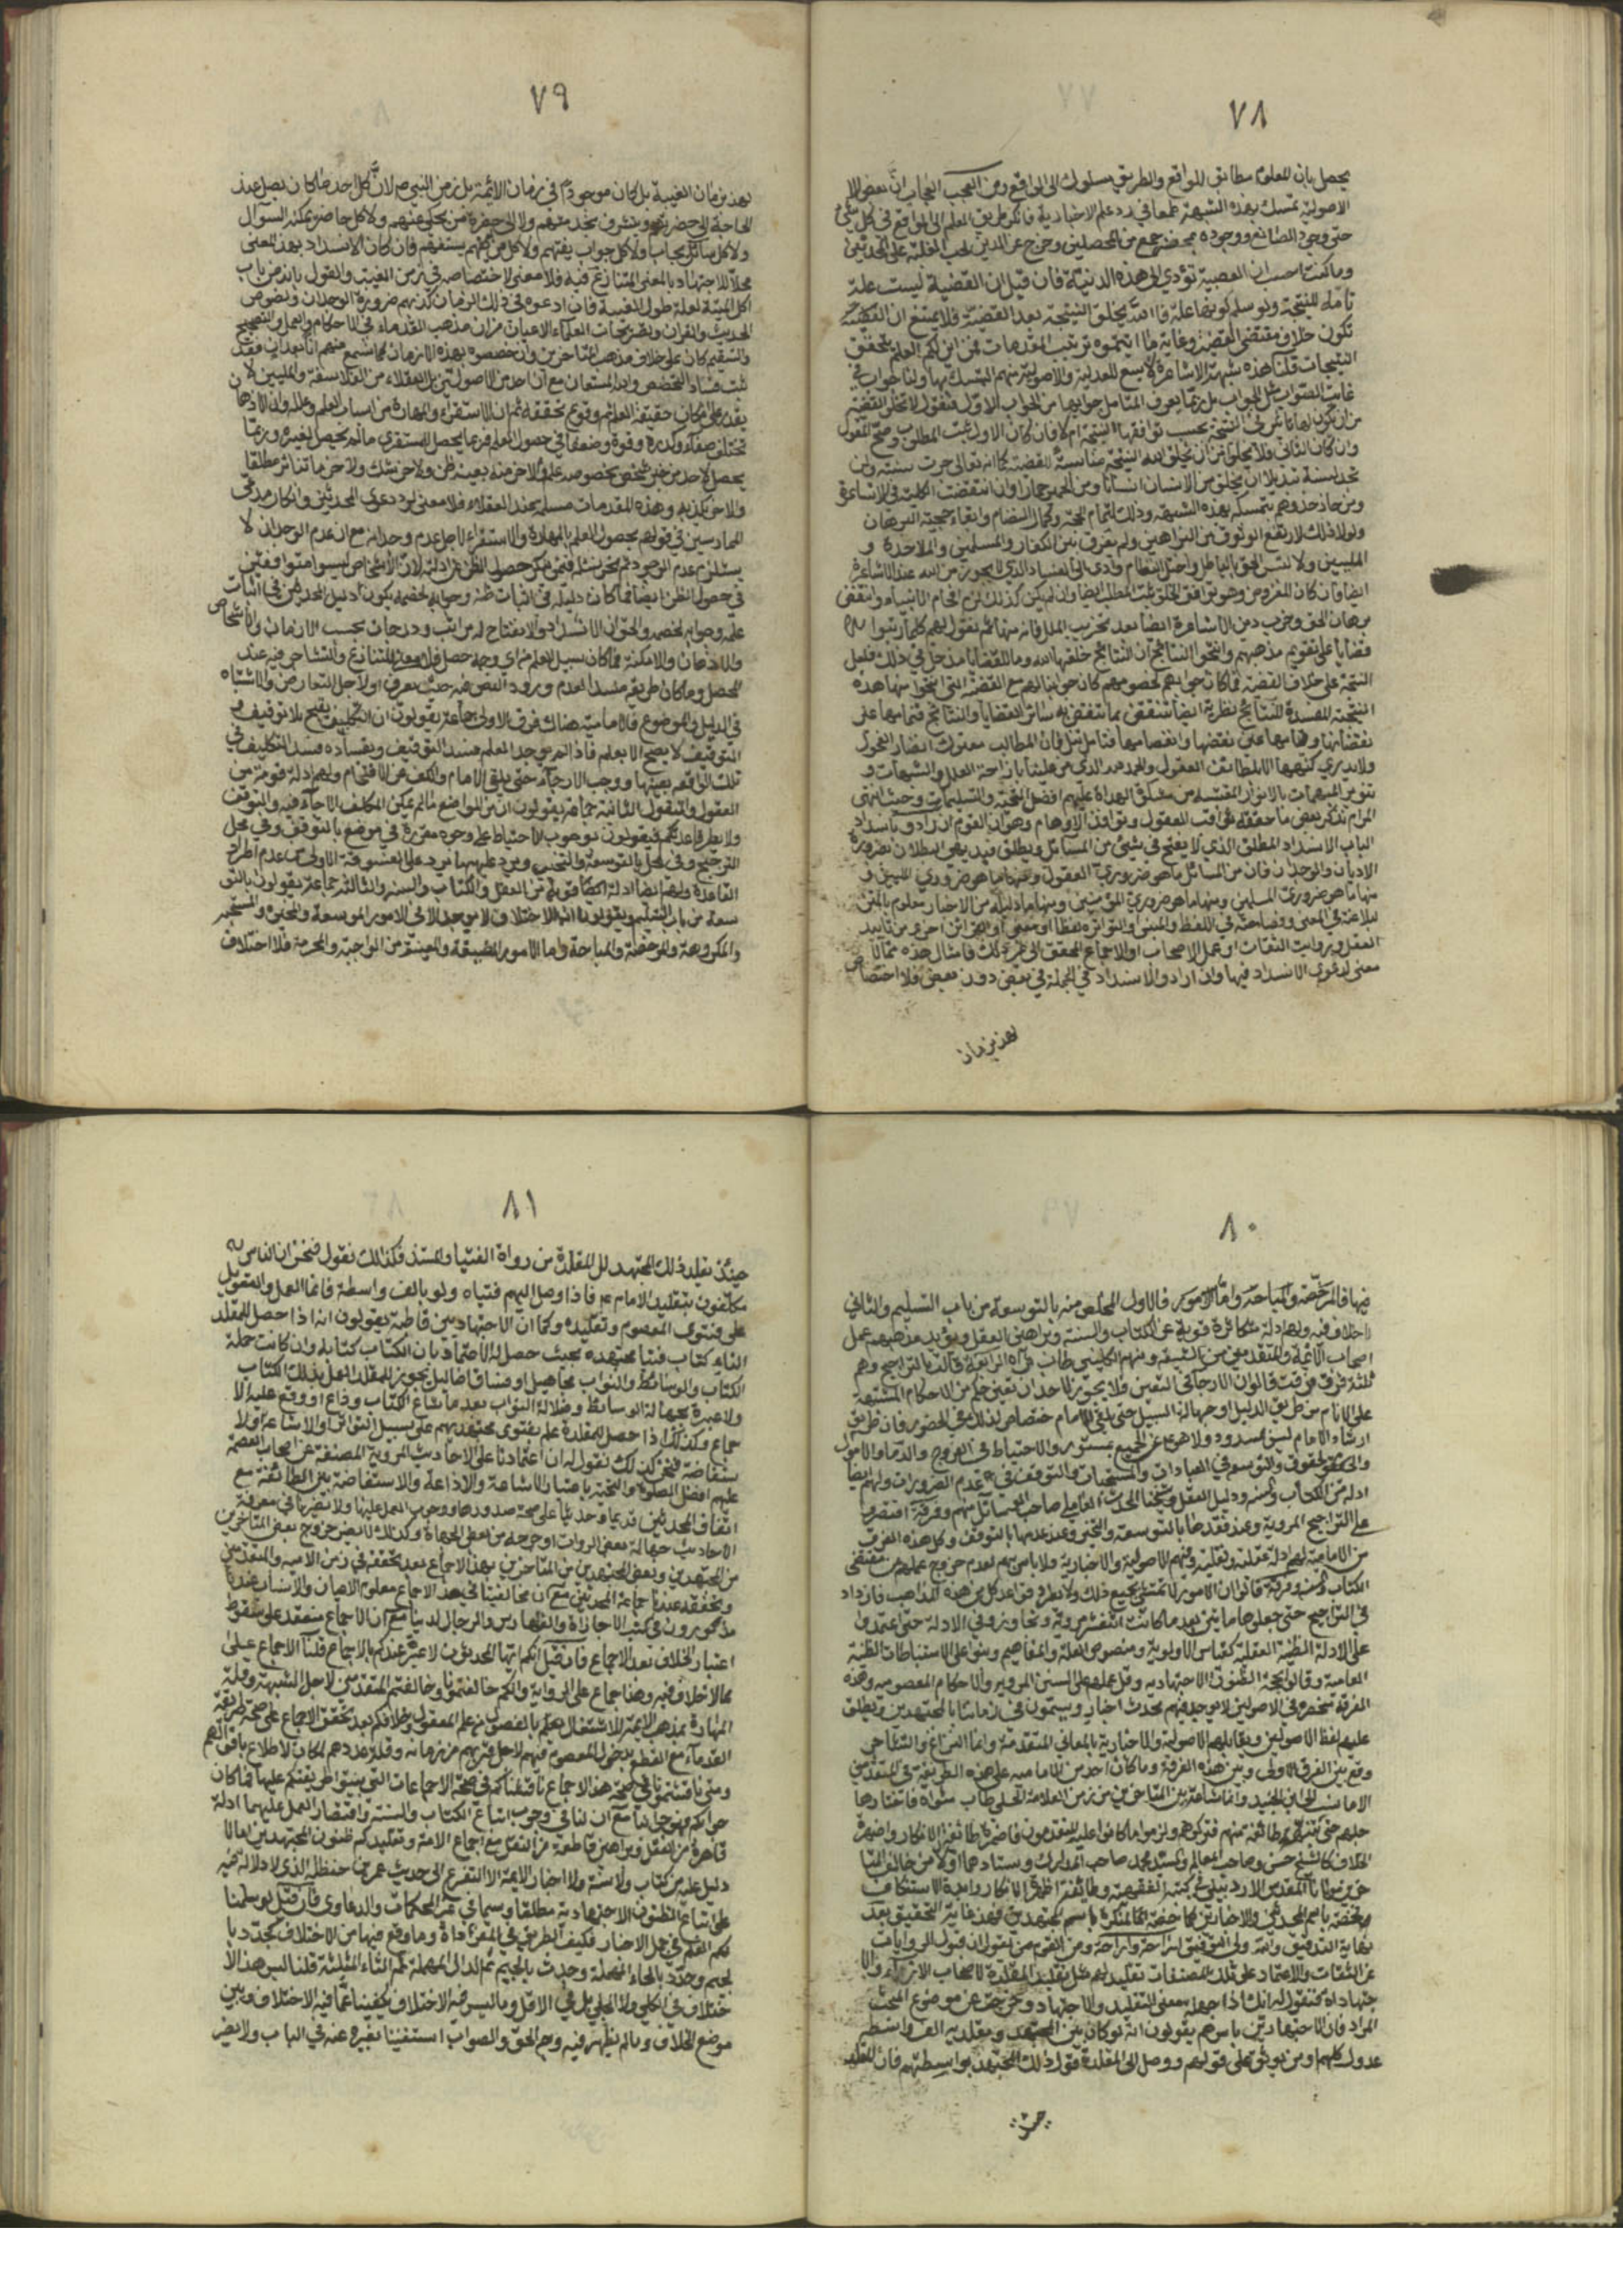 ٧٨
يحصل بان المعلوم مطابق للواقع والطريق مسلوك الى الواقع ومن العجب العجاب ان بعض
الاصولية تمسك بهذه الشبهة طمعا في رد علم الاخبارية فانكر طريق العلم الى الواقع في كل شئ
حتى وجود الصانع ووجوده محضر جمع من المحصلين وخرج عن الدين لحب الغلبة على المحدثين
وما كنت احسب ان العصبية تؤدي الى هذه الدنية فان قيل ان القضية ليست علة
تامة للنتيجة ولو سلم كونها علة فالله يخلق النتيجة بعد القضية فلا يمتنع ان
تكون خلاف مقتضى القضية وغاية ما اثبتموه ترتيب المقدمات فمن اين لكم العلم بتحقق
النتيجات قلنا هذه شبهة الاشاعرة لا يسع للعدلية والاصولية منهم التمسك بها ولنا جواب في
غاية الصواب بل ربما يعرف المتامل جوابها من الجواب الاول فنقول لا تخلو القضية
من ان يكون لها تاثير في النتيجة بحسب توافقها النتيجة ام لا فان كان الاول ثبت المطلوب وصح المقول
وان كان الثاني فلا يخلو من ان يخلق الله النتيجة مناسبة للقضية كما انه تعالى جرت سنته ولن
تجد لسنة تبديلا ان يخلق من الانسان انسانا ومن الحمير حمارا وان انتقضت الكلية في الاشاعرة
ومن حاذ حذوهم بتمسكه بهذه الشبهة وذلك لتمام الحجة وكمال النظام وابقاء حجية البرهان
ولولا ذلك لارتفع الوثوق من البراهين ولم يفرق بين الكفار والمسلمين والملاحدة و
المليين ولالتبس الحق بالباطل واختل النظام وادى الى الفساد الذي لا يجوز من الله عند الاشاعرة
ايضا وان كان المفروض وهو توافق الخلق ثبت المطلب ايضا وان لم يكن كذلك لزم افحام الانبياء وانتقض
برهان الحق وخرب دين الاشاعرة ايضا بعد تخريب الملل فانه منهاهم نقول لهم كلما رتبوا
قضايا على تقويم مذهبهم وانتجوا النتائج ان النتائج خلقها الله وما للقضايا مدخل في ذلك فلعل
النتيجة على خلاف القضية فما كان جوابهم لخصومهم كان جوابنا لهم مع القضية التي انتجوا منها هذه
النتيجة المفسدة للنتائج نظرية ايضا تنتقض بما تنتقض به سائر القضايا والنتائج فتمامها على
نقصانها وتمامها على نقضها وانفصامها فتامل قيل فان المطالب معترك انظار الفحول
ولا يدري كنهها الا بلطائف العقول والحمد لله الذي من علينا بازاحة العلل والشبهات و
تنوير المبهمات بالانوار المقتبسة من مشكاة الهداة عليهم افضل التحية والتسليمات وحيث انتهى
المرام نذكر بعض ما حققه ثواقب العقول وتوافق الاوهام وهو ان القوم ان ارادوا بانسداد
الباب الانسداد المطلق الذي لا يفتح في شئ من المسائل ويطلق فبديهي البطلان بضرورة
الاديان والوجدان فان من المسائل ما هو ضروري العقول ومنها ما هو ضروري المليين و
منها ما هو ضروري المسلمين ومنها ما هو ضروري المؤمنين ومنها ما دليله من الاخبار معلوم بالمتن
لبلاغته في المعنى وفصاحته في اللفظ والمبنى والتواتر لفظا او معنى او القرائن اخرى من تاييد
العقل وبروايت الثقات او عمل الاصحاب او الاجماع المحقق الى غير ذلك فامثال هذه مما لا
معنى لدعوى الانسداد فيها وان ارادوا الانسداد في الجملة في بعض دون بعض فلا اختصاص
بهذ بزمان
٧٩
بهذ بزمان الغيبة بل كان موجودا في زمان الائمة بل زمن النبي ص لان كل احد ما كان يصل عند
الحاجة الى حضرتهم ويتشرف بخدمتهم ولا الى حضرة من يحكي عنهم ولا كل حاضر يمكنه السؤال
ولا كل سائل يجاب ولا كل جواب يفتيهم ولا كل من يكلمهم يستفهم فان كان الانسداد بهذ المعنى
محلا للاجتهاد بالمعنى المتنازع فيه فلا معنى لاختصاصه في زمن الغيبة والقول بانه من باب
اكل الميتة لعلة طول الغيبة فان ادعوه في ذلك الزمان كذبهم ضرورة الوجدان ونصوص
الحديث والقران وتصريحات العلماء الاعيان من ان مذهب القدماء في الاحكام والعمل والتصحيح
والتسقيم كان على خلاف مذهب المتاخرين وان خصصوه بهذه الازمان كما نسمع منهم انا بعد ان فقد
ثبت فساد التخصص والله المستعان مع ان احد من الاصوليين بل العقلاء من الفلاسفة والمليين لا
يقدر على انكار حقيقة العلم وقوع تحققه ثم ان الاستقراء والمهارة من اسباب العلم وعلله وان الاذهان
تختلف صفاء وكدرة وقوة وضعفا في حصول العلم فربما يحصل للمستقري ما لم يحصل لغيره وربما
يحصل لاحد من خبر شخص بخصوصه علم ولآخر منه بعينه ظن ولآخر شك ولآخر ما تناثر مطلقا
والآخر يكذبه وهذه المقدمات مسلمة عند العقلاء فلا معنى لرد دعوى المحدثين وانكار مدعى
الممارسين في قولهم بحصول العلم بالمهارة والاستقراء لاجل عدم وجدانه مع ان عدم الوجدان لا
يستلزم عدم الوجود ثم نحن نسئلهم فمن ينكر حصول الظن من ادلة لان الاشخاص ليسوا متوافقين
في حصول الظن ايضا فما كان دليله في اثبات ظنه وجوابه لخصمه يكون دليل المحدثين في اثبات
علمه وجوابه لخصمه والحق ان الانسداد والانفتاح له مراتب ودرجات بحسب الازمان والاشخاص
والاذهان والامكنة فما كان سبيل العلم من اي وجه حصل فلا معنى للتنازع والتشاجر فيه عند
المحصل وما كان طريقه منسد العدم ورود النص فيه حيث يعرف او لاجل التعارض والاشتباه
في الدليل والموضوع فالامامية هناك فرق الاولى جماعة يقولون ان التكليف يقبح بلا توقيف و
التوقيف لا يصح الا بعلم فاذا لم يوجد العلم فسد التوقيف وبفساده فسد التكليف في
تلك الواقعة بعينها ووجب الارجاء حتى يلقى الامام والكف عن الاقتحام ولهم ادلة قوية من
العقول والنقول الثانية جماعة يقولون ان من المواضع ما لم يمكن المكلف الارجاء فيه والتوقف
ولا يطرد قاعدتكم فيقولون بوجوب الاحتياط على وجوه مقررة في موضع بالتوقف وفي محل
الترجيح وفي محل بالتوسعة والتخيير ويرد عليهم ما يورد على الفرقة الاولى من عدم اطراد
القاعدة ولهم ايضا ادلة قوية من العقل والكتاب والسنة والثالثة جماعة يقولون بالتو
سعة من باب التسليم ويقولون ان الاختلاف لا يوجد الا في الامور الموسعة والمخيرة والمستحبة
والمكروهة والمرخصة والمباحة واما الامور المضيقة والمعينة من الواجبة والمحرمة فلا اختلاف
٨٠
فيها فالمرخصة والمباحة واما الامور فالاول المخلص منه بالتوسعة من باب التسليم والثاني
لا خلاف فيه ولهم ادلة متكاثرة قوية من الكتاب والسنة وبراهين العقل ويؤيد مذهبهم عمل
اصحاب الائمة والمتقدمين من الشيعة ومنهم الكليني طاب ثراه الرابعة قالت بالتراجيح وهم
ثلثة فرق فرقة قالوا ان الارجاء في التعين فلا يجوز لاحد ان يعين حكم من الاحكام المشتبهة
على الانام من طريق الدليل او جهالة السبيل حتى يلقى الامام خصاص لذلك في الحضور فان طريق
ارشاد الامام ليس بمسدود ولا هو عن الجميع بمستور والاحتياط في الفروج والدماء والاموال
والحقوق والتوسع في العبادات والمستحبات والتوقف في عدم الضرورات ولهم ايضا
ادلة من الكتاب والسنة ودليل العقل وشيخنا المحدث العاملي صاحب الوسائل منهم وفرقة اقتصروا
على التراجيح المروية وعند فقدها بالتوسعة والتخيير وعند عدمها بالتوقف وكل هذه الفرق
من الامامية لهم ادلة عقلية ونقلية وفيهم الاصولية والاخبارية ولا باس بهم لعدم خروج عملهم من مقتضى
الكتاب والسنة وفرقة قالوا ان الامور لا تتمشى بجميع ذلك ولا تطرد قواعد كل من هذه المذاهب فازداد
في التراجيح حتى جعلوها مائتين بعد ما كانت اثنتي عشر مروية وتجاوزوا في الادلة حتى اعتمدوا
على الادلة الظنية العقلية كقياس الاولوية ومنصوص العلة والمفاهيم وبنوا على الاستنباطات الظنية
العامية وقالوا بحجية الظنون الاجتهادية وقل عملهم على السنن المروية والاحكام المعصومية وهذه
الفرقة منحصرة في الاصولين لا يوجد فيهم محدث اخباري ويسمون في ازماننا بالمجتهدين ويطلق
عليهم لفظ الاصوليين ويقابلهم الاصولية والاخبارية بالمعاني المتقدمة وانما النزاع والتشاجر
وقع بين الفرق الاولى وبين هذه الفرقة وما كان احد من الامامية على هذه الطريقة في المتقدمين
الا ما نسب الى ابن الجنيد وانما شاعت بين المتاخرين من زمن العلامة الحلي طاب مثواه فاختارها
جلهم حتى تنبه طائفة منهم فتركوها ولزموا ما كانوا عليه المتقدمون فاضمرت طائفة الانكار واضمرت
الخلاف كالشيخ حسن وصاحب المعالم والسيد محمد صاحب المدارك واستادهما اولا من خالف المتا
خرين مولانا المقدس الاردبيلي في كتبه الفقهية وطائفة اظهروا الانكار وابدوا الاستنكاف
مختصة باسم المحدثين والاخباريين كما خصة المنكرة باسم المجتهدين فهذه غاية التحقيق بعد
نهاية التدقيق وامة ولي التوفيق ازاحة وازاحة ومن القوم من يقول ان قبول الروايات
عن الثقات والاعتماد على تلك المصنفات تقليد لهم مثل تقليد المقلدة لاصحاب الاراء والا
جتهادات فنقول له انك اذا جهلت معنى التقليد والاجتهاد وخرجت عن موضوع المبحث
المراد فان الاجتهاديين باسرهم يقولون انه لو كان بين المجتهد ومقلديه الف واسطة
عدول كلهم ومن يوثق على قولهم ووصل الى المقلدة قول ذلك المجتهد بواسطتهم فان المقلد
حينئذ
٨١
حينئذ يقلد ذلك المجتهد لا المقلدة من رواة الفتيا والمستند فكذلك نقول فنحن ان الناس
مكلفون بتقليد الامام ع فاذا وصل اليهم فتياه ولو بالف واسطة فانما العمل والتعويل
على فتوى المعصوم وتقليده وكما ان الاجتهاديين قاطبة يقولون انه اذا حصل للمقلد
الفائز كتاب فتيا مجتهده بحيث حصل له الاعتماد بان الكتاب كتابه وان كانت حملة
الكتاب والوسائط والنواب مجاهيل او فساق اضاليل يجوز للمقلد العمل بذلك الكتاب
ولا عبرة بجهالة الوسائط وضلالة النواب بعد ما شاع الكتاب وذاع او وقع عليه الا
جماع وكذلك اذا حصل للمقلدة علم بفتوى مجتهدهم على سبيل التواتر والاشاعة والا
ستفاضة فنحن كذلك نقول له ان اعتمادنا على الاحاديث المروية المصنفة عن اصحاب العصمة
عليهم افضل الصلوة والتحية باعتبار الاشاعة والاذاعة والاستفاضة بين الطائفة مع
اتفاق المحدثين قديما وحديثا على صحة صدورها ووجوب العمل عليها ولا تضرنا في معرفة
الاحاديث جهالة بعض الروات او خروجه من بعض الجهات وكذلك لا يضر خروج بعض المتاخرين
من المجتهدين وبعض المجتهدين من المتاخرين بهذا الاجماع بعد تحققه في زمن الائمة والمتقدمين
وتحققه عندنا جماعة المحدثين مع ان مخالفينا في هذ الاجماع معلوم الاعيان والانساب عندنا
مذكورون في كتب الاجازات والفهارس والرجال لدينا مع ان الاجماع منعقد على سقوط
اعتبار الخلاف بعد الاجماع فان قيل انكم ايها المحدثون لا عبرة عندكم بالاجماع قلنا الاجماع على
ما لا خلاف فيه وهذا جماع على الرواية وانكم خالفتمونا وخالفتم المتقدمين لاجل الشبهة وقلة
المهارة بمذهب الائمة للاشتغال بعلم بالفصول من علم المعقول وخلافكم بعد تحقق الاجماع على صحة طريقة
القدماء مع القطع بدخول المعصوم فيهم لاجل قربهم من زمانه وقلة عددهم لمكان الاطلاع باقوالهم
ومتى ناقشتمونا في صحة هذ الاجماع ناقشناكم في صحة الاجماعات التي بنيتوا طريقتكم عليها فما كان
جوابكم فهو جوابنا مع ان لنا في وجوب اتباع الكتاب والسنة واقتصار العمل عليهما ادلة
قاهرة من العقل وبراهين قاطعة من النقل مع اجماع الامة وتقليدكم ظنون المجتهدين اما لا
دليل عليه من كتاب ولا سنة ولا اخبار الائمة الا التفرع الى حديث عمر بن حنظلة الذي لا دلالة فيه
على اتباع الظنون الاجتهادية مطلقا وسيما في غير المحاكمات والدعاوي فان قيل لو سلمنا
لكم العلم في جل الاخبار فكيف الطريق في المفردات وما وقع فيها من الاختلاف كجدد با
لجيم وحدد بالحاء المهملة وحدث بالجيم ثم الدال المهملة ثم الثاء المثلثة قلنا ليس هذ الا
ختلاف في الكلي ولا الجلي بل في الاقل وما ليس فيه الاختلاف يكفينا عما فيه الاختلاف وبين
موضع الخلاف وما لم يظهر فيه وجه الحق والصواب استغنينا بغيره عنه في الباب ولا يضر